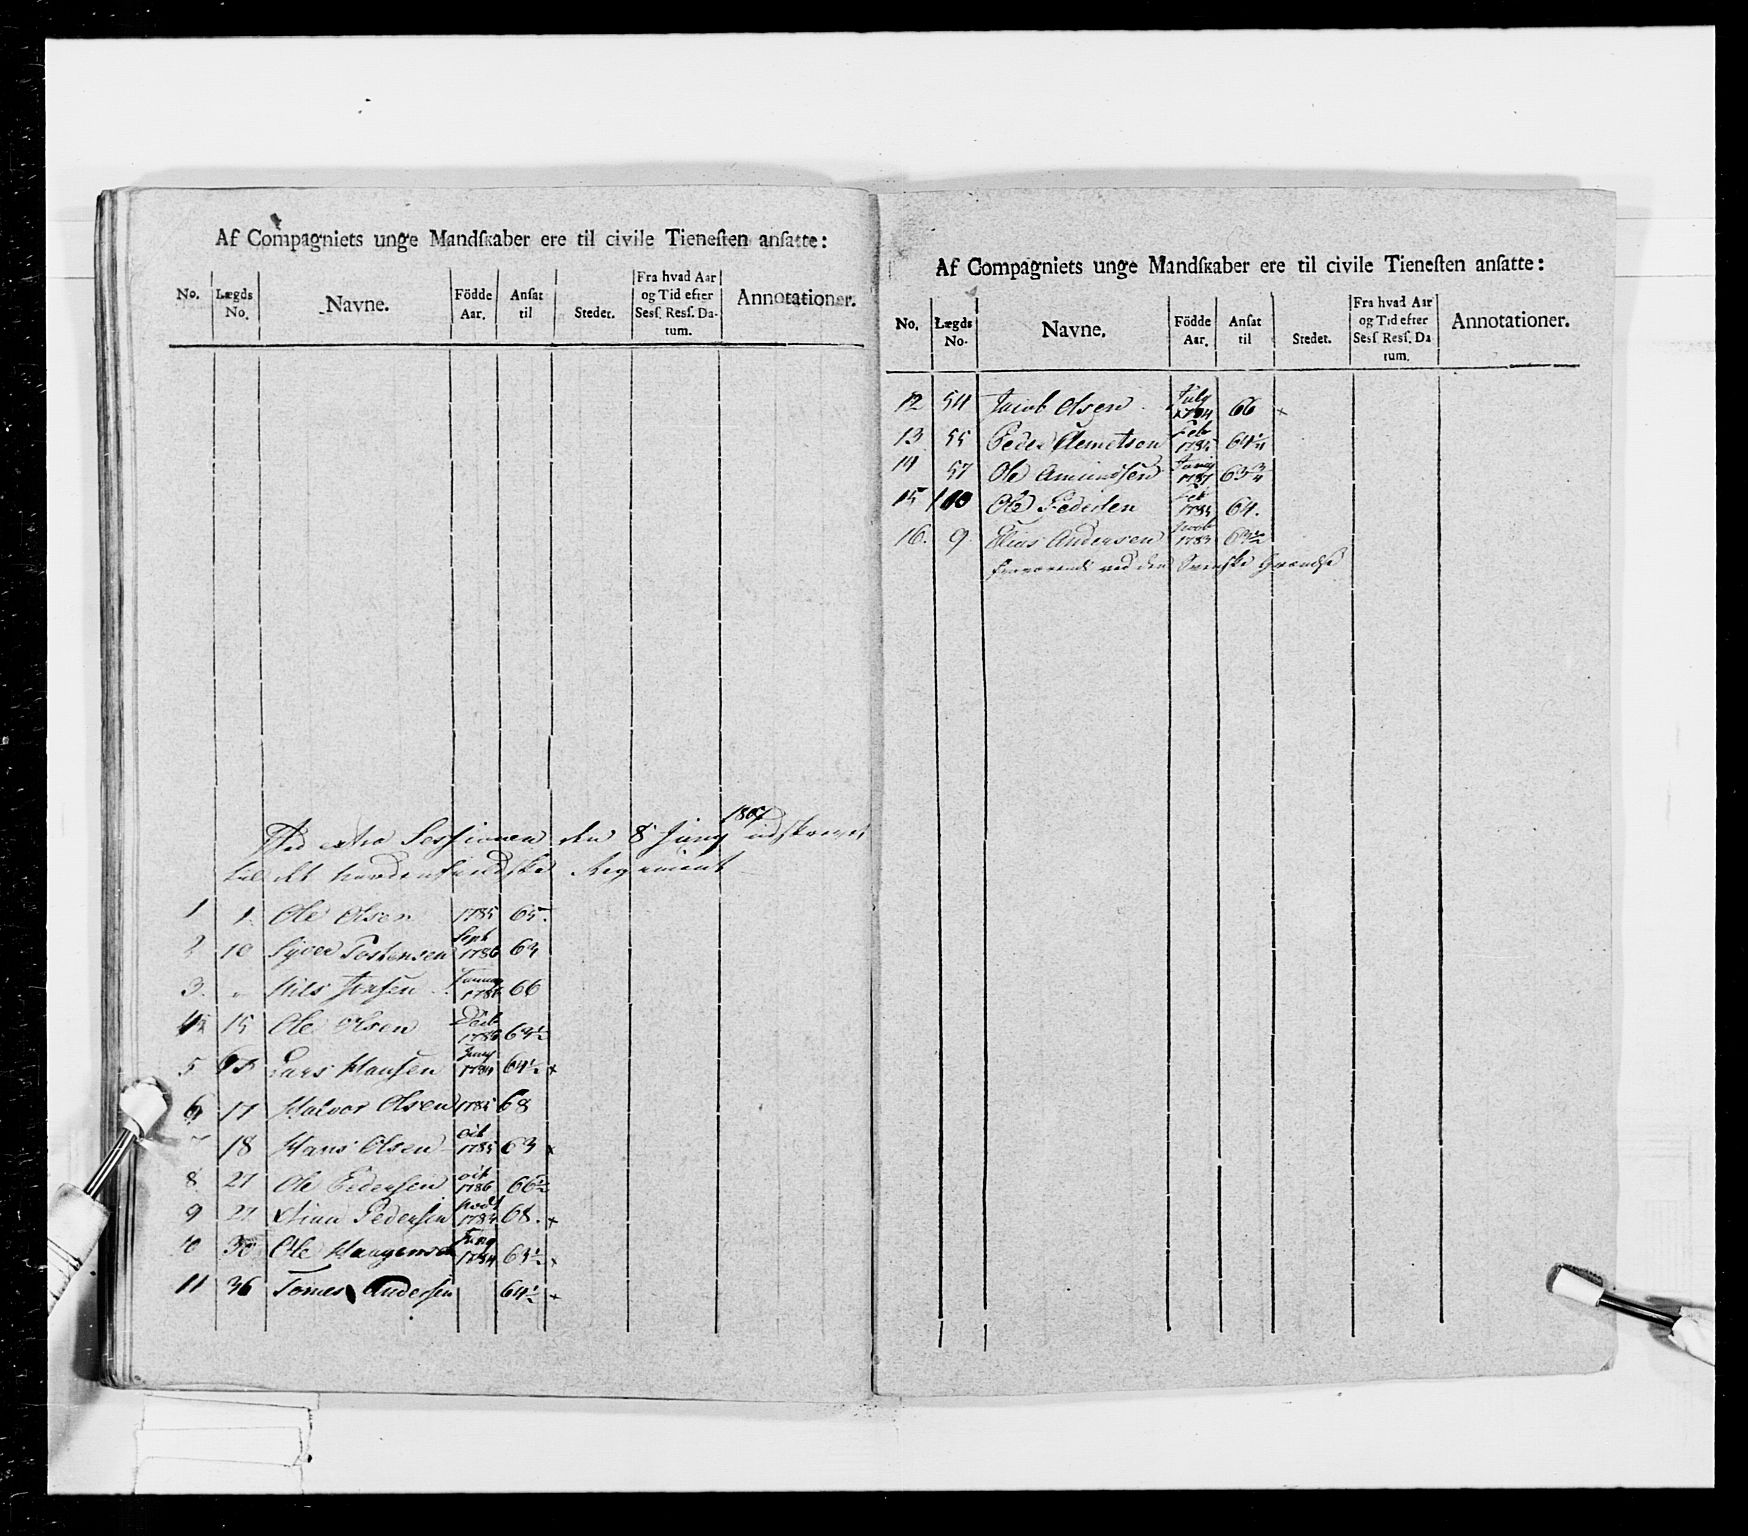 Af Compagniets unge Mandſkaber ere til civile Tieneſten anſatte:
No. Lægds No. Navne. Födde Aar. Anſat til Stedet. Fra hvad Aar og Tid efter Sesſ. Resſ. Datum. Annotationer.
1807
Ved extra Sessionen den 8 Juny indskrevet
til det nordenfieldske Regiment
1 1. Ole Olsen 1785 65.
2 10 Syver Tostensen Sept 1786 63
3. " Nils Jensen 1786 66
4 15 Ole Olsen 1786 63½
5 Lars Hansen Juny 1784 64½ x
6 17 Halvor Olsen 1785 68
7 18 Hans Olsen Oct 1785 63 x
8 21 Ole Pedersen Oct 1786 66½
9 21 Pedersen 1784 68. x
10 30 Ole Haagensen Juny 1784 63½ x
11 36 Tomes Andersen 64½ x
Af Compagniets unge Mandſkaber ere til civile Tieneſten anſatte:
No. Lægds No. Navne. Födde Aar. Anſat til Stedet. Fra hvad Aar og Tid efter Sesſ Resſ. Datum. Annotationer.
12 54 Jacob Olsen July 1784 66 x
13 55 Peder Clemetsen Feb 1785 64¼
14 57 Ole Amundsen 1787 63¾
15 Ole Pedersen Feb 1785 64.
16. 9 Elias Andersen 1783 69½
fraværende ved den Svenske Grændse